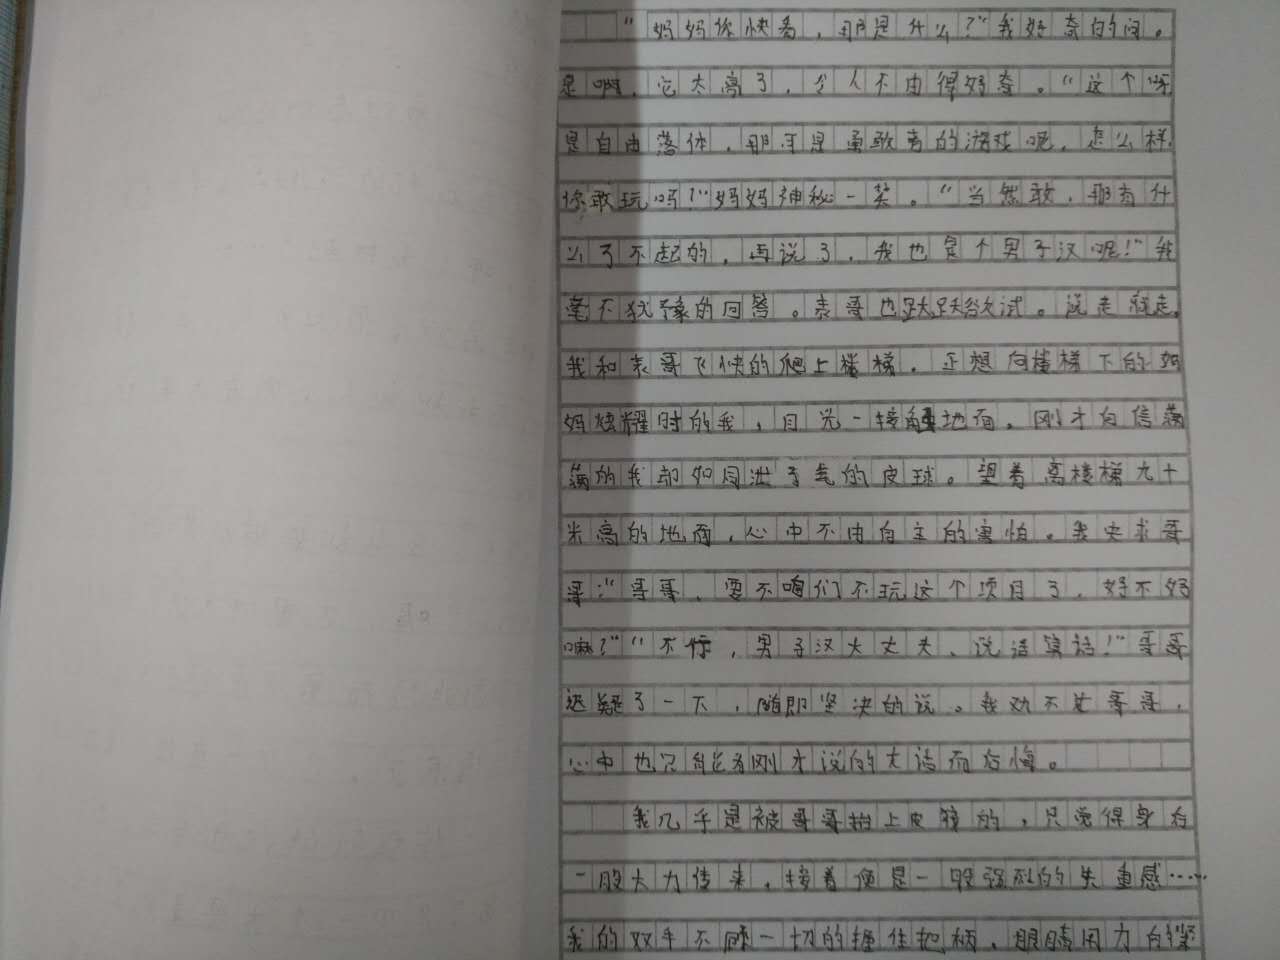 “妈妈你快看，那是什么？”我好奇的问。
是啊，它太高了，令人不由得好奇。“这个呀
是自由落体，那可是勇敢者的游戏呢，怎么样，
你敢玩吗？”妈妈神秘一笑。“当然敢，那有什
么了不起的，再说了，我也是个男子汉呢！”我
毫不犹豫的回答。表哥也跃跃欲试。说走就走，
我和表哥飞快的爬上楼梯，正想向楼梯下的妈
妈炫耀时的我，目光一接触地面，刚才自信满
满的我却如同泄了气的皮球。望着离楼梯九十
米高的地面，心中不由自主的害怕。我央求哥
哥：“哥哥，要不咱们不玩这个项目了，好不好
嘛？”“不行，男子汉大丈夫，说话算话！”哥哥
迟疑了一下，随即坚决的说。我劝不过哥哥，
心中也只能为刚才说的大话而后悔。
我几乎是被哥哥抬上皮筏的，只觉得身后
一股大力传来，接着便是一股强烈的失重感……
我的双手不顾一切的握住把柄，眼睛用力的紧